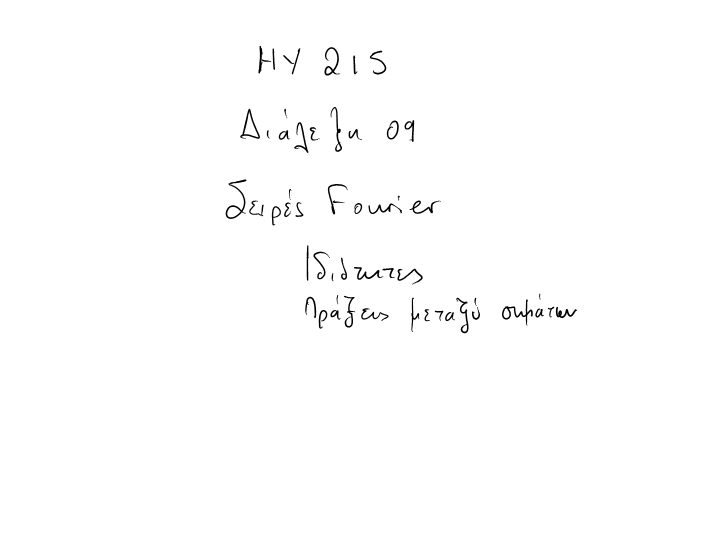 ΗΥ 215
Διάλεξη 09
Σειρές Fourier
Ιδιότητες
Πράξεις μεταξύ σημάτων